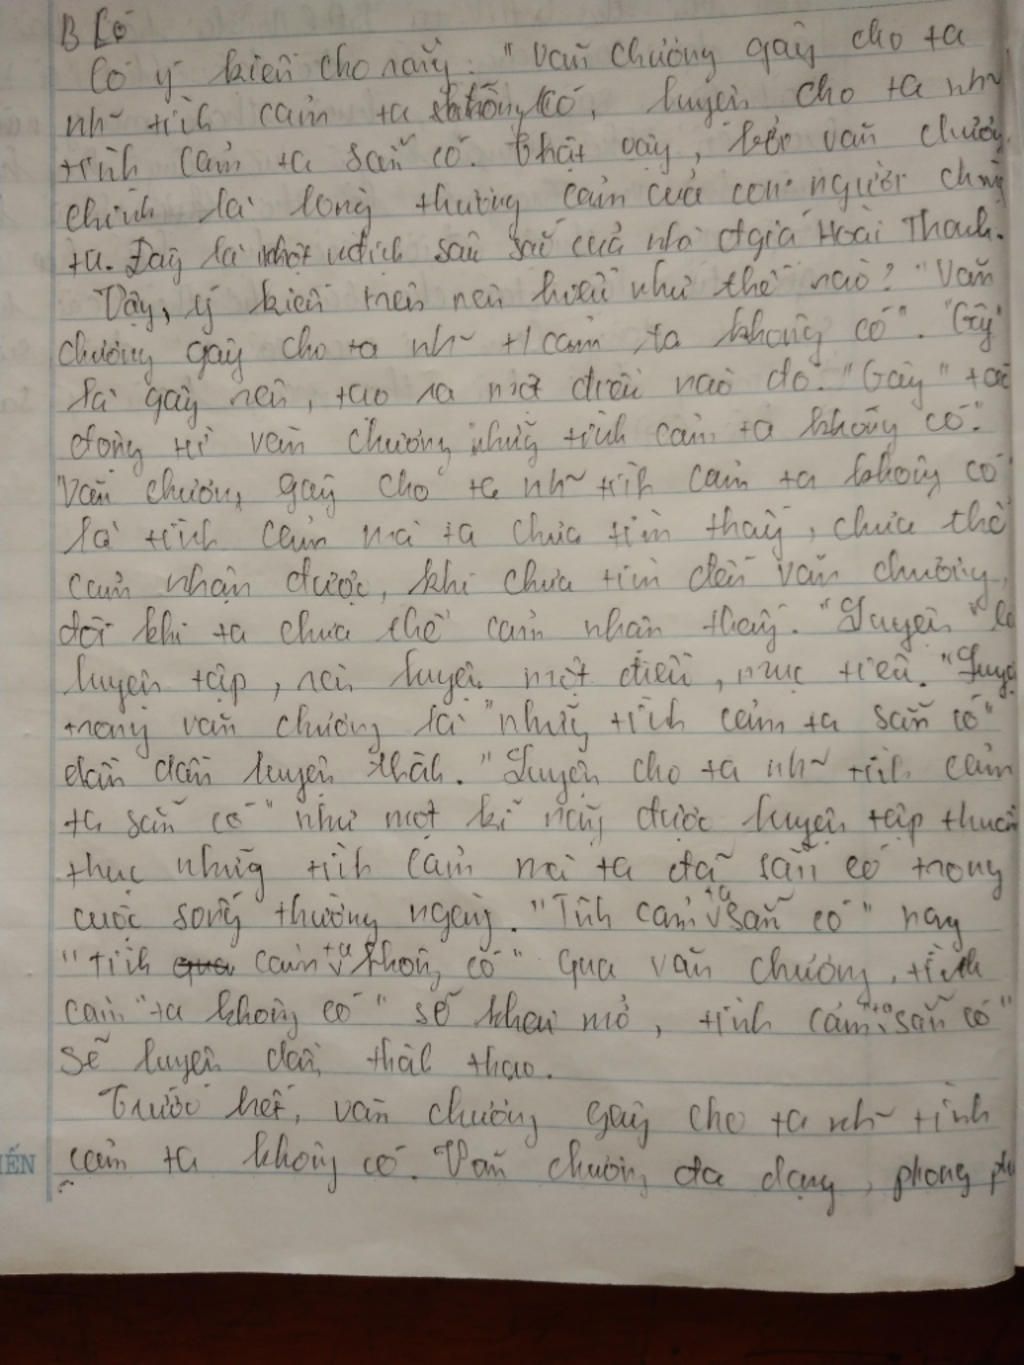 B Có
Có ý kiến cho rằng: "Văn chương gây cho ta
nh~ tình cảm ta không có, luyện cho ta nh~
tình cảm ta sẵn có. Thật vậy, bởi văn chương
chính là lòng thương cảm của con người chúng
ta. Đây là nhận định sâu sắc của nhà t.giả Hoài Thanh.
Vậy, ý kiến trên nên hiểu như thế nào? "Văn
chương gây cho ta nh~ t/cảm ta không có". "Gây"
là gây nên, tạo ra một điều nào đó. "Gây" tác
động từ văn chương những tình cảm ta không có."
"Văn chương gây cho ta nh~ tình cảm ta không có
là tình cảm mà ta chưa tìm thấy, chưa thể
cảm nhận được, khi chưa tìm đến văn chương,
đôi khi ta chưa thể cảm nhận thấy. "Luyện" là
luyện tập, rèn luyện một điều, mục tiêu. "Luyện
trong văn chương là "những tình cảm ta sẵn có"
dần dần luyện thành. "Luyện cho ta nh~ tình cảm
ta sẵn có" như một kĩ năng được luyện tập thuần
thục những tình cảm mà ta đã sẵn có trong
cuộc sống thường ngày. "Tình cảm ta sẵn có" hay
"tình cảm ta không có" qua văn chương, tình
cảm "ta không có" sẽ khơi mở, tình cảm "ta sẵn có"
sẽ luyện dần thành thạo.
Trước hết, văn chương gây cho ta nh~ tình
cảm ta không có. Văn chương đa dạng, phong phú
IẾN